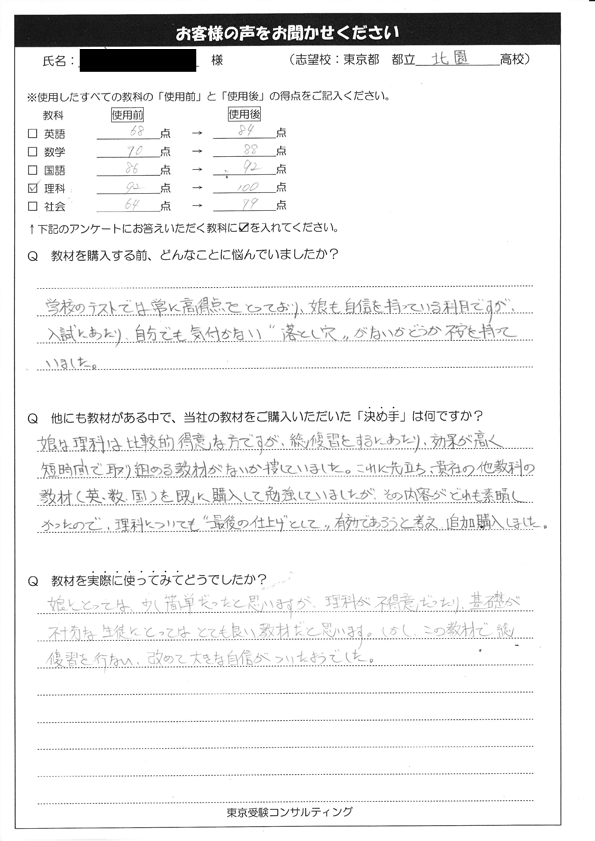 お客様の声をお聞かせください
氏名： 様 （志望校：東京都 都立 北園 高校）
※使用したすべての教科の「使用前」と「使用後」の得点をご記入ください。
教科 使用前 使用後
□ 英語 68 点 → 84 点
□ 数学 70 点 → 88 点
□ 国語 86 点 → 92 点
☑ 理科 92 点 → 100 点
□ 社会 64 点 → 79 点
↑下記のアンケートにお答えいただく教科に☑を入れてください。
Q 教材を購入する前、どんなことに悩んでいましたか？
学校のテストでは常に高得点をとっており、娘も自信を持っている科目ですが、
入試にあたり、自分でも気付かない“落とし穴”がないかどうか不安を持って
いました。
Q 他にも教材がある中で、当社の教材をご購入いただいた「決め手」は何ですか？
娘は理科は比較的得意な方ですが、総復習をするにあたり、効果が高く
短時間で取り組める教材がないか探していました。これに先立ち、貴社の他教科の
教材（英、数、国）を既に購入して勉強していましたが、その内容がどれも素晴し
かったので、理科についても“最後の仕上げとして”有効であろうと考え、追加購入しました。
Q 教材を実際に使ってみてどうでしたか？
娘にとっては、少し簡単だったと思いますが、理科が不得意だったり、基礎が
不十分な生徒にとってはとても良い教材だと思います。しかし、この教材で総
復習を行ない、改めて大きな自信がついたようでした。
東京受験コンサルティング